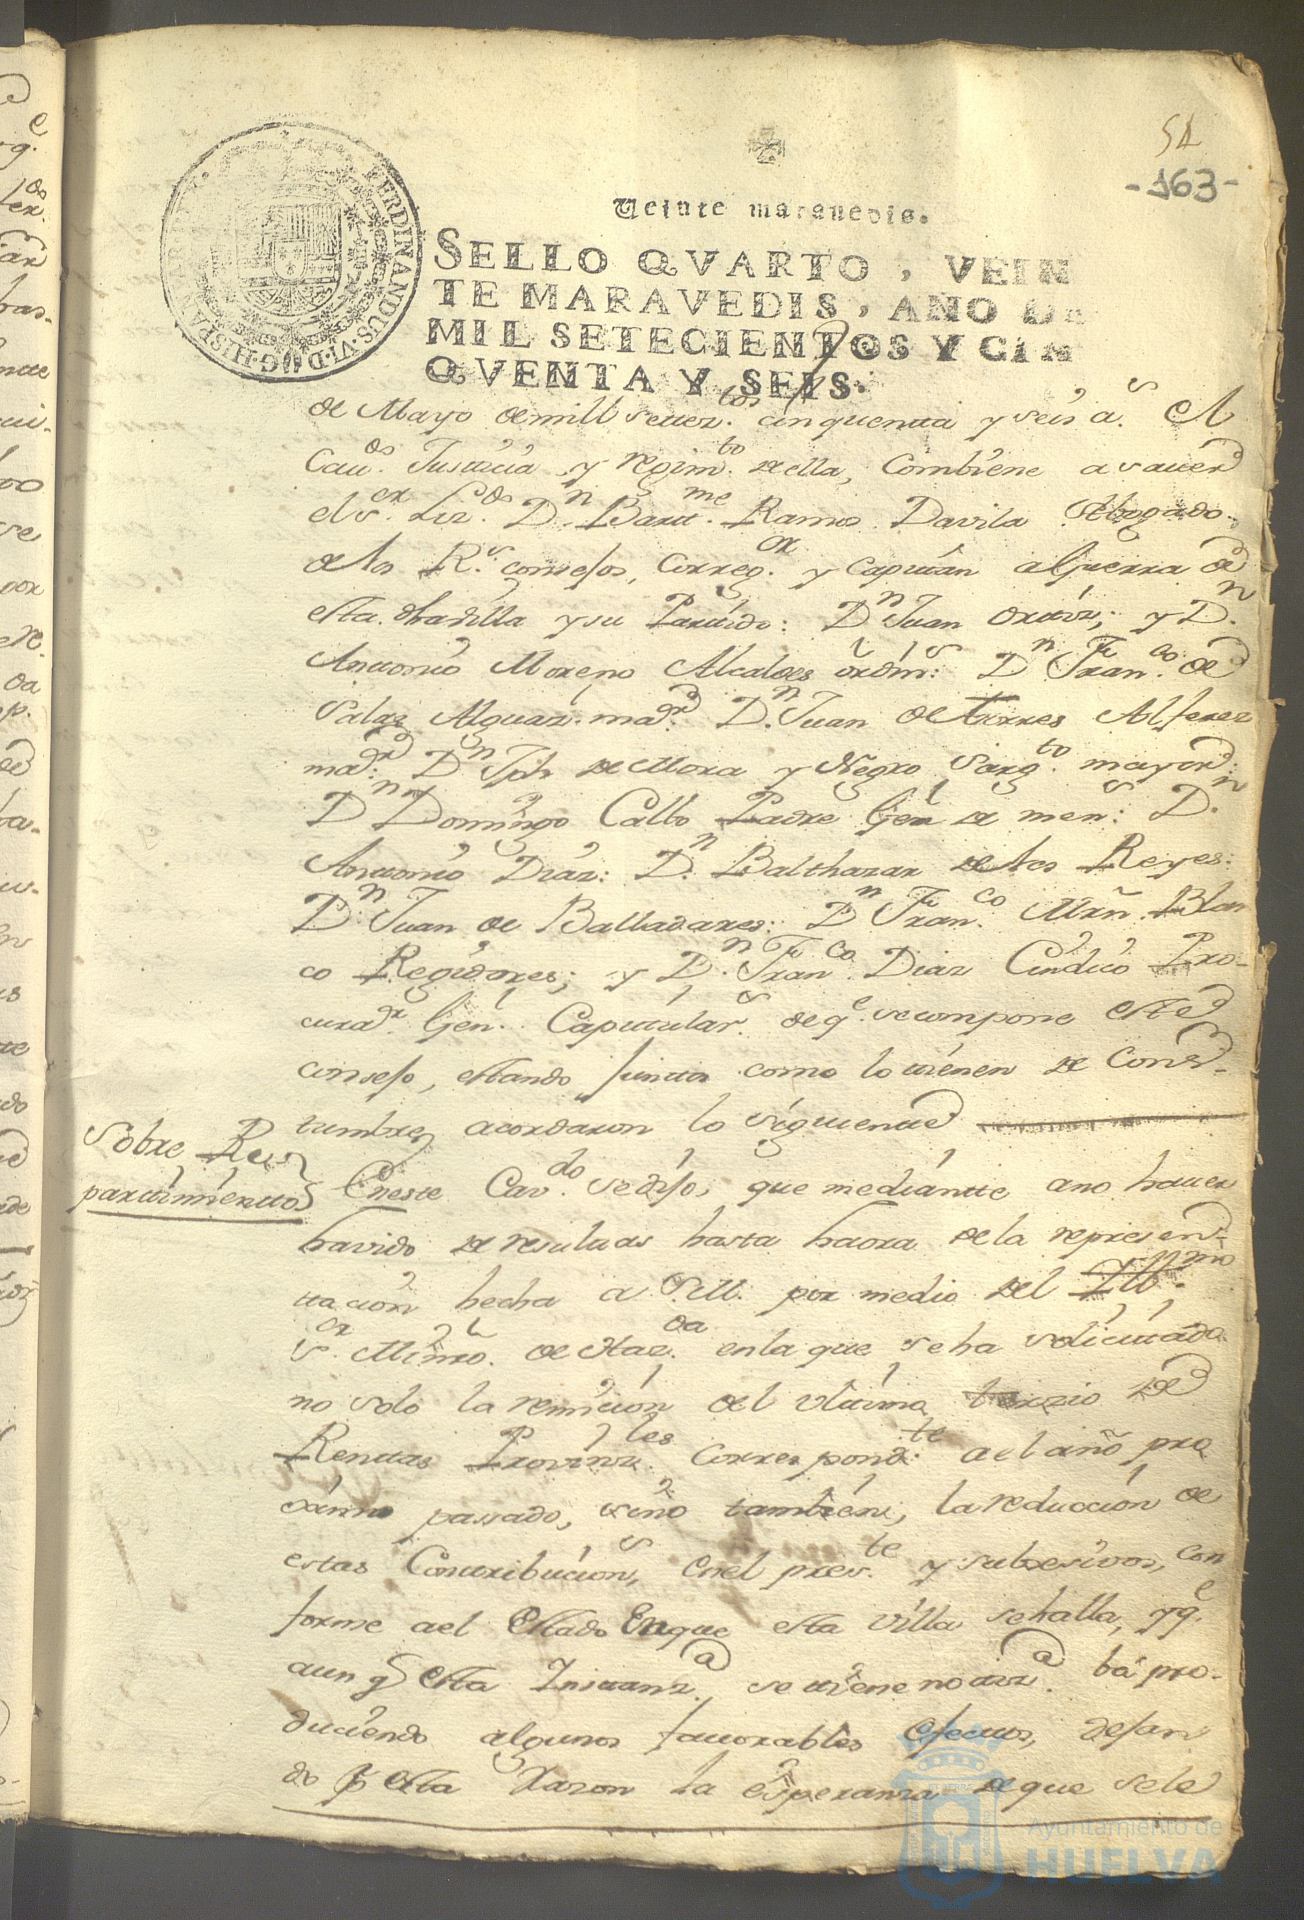 54
-163-
Veinte maravedis.
SELLO QVARTO, VEIN
TE MARAVEDIS, AÑO DE
MIL SETECIENTOS Y CIN
QVENTA Y SEIS.
FERDINANDUS·VI·D·G·HISPANIAR
de Mayo de mill setez.tos cinquenta y seis a.s el
Cau.do Justicia y regim.to de ella, combiene a sauer
el s.or Liz.do D.n Bart.me Ramos Davila Abogado
de los R.s consejos, Correg.or y capitan a Guerra de
esta dha villa y su Partido: D.n Juan Ortiz; y D.n
Antonio Moreno Alcaldes ordin.s: D.n Fran.co de
Salas Alguaz.l maor. D.n Juan de Torres Alferez
maor: D.n Jph de Mora y Negro Sarg.to mayor:
D.n Domingo Calbo Padre Gen.l de men.s: D.n
Antonio Diaz: D.n Balthazar de los Reyes:
D.n Juan de Balladares: D.n Fran.co Mrñ. Blan
co Regidores; y D.n Fran.co Diaz Cindico Pro-
curad.r Gen.l Capitular.s de q.e se compone este
consejo, estando juntos como lo tienen de Cons-
tumbre, acordaron lo siguiente
Sobre Re-
partimientos
En este Cav.do se dijo, que mediantte a no hauer
havido de resultas hasta haora de la represen-
tacion hecha a S.M. por medio del Ill.mo
S.or Mintro. de Haz.da en la que se ha solicitado
no solo la remicion del vltimo terzio de
Rentas Provinz.les correspond.te a el año pro
ximo passado, sino tambien, la reduccion de
estas Contribucion.s en el pres.te y subzesivos, con
forme a el Estado En que esta villa se halla, y q.e
aun q esta Instanz.a se tiene notiz.a ba pro-
duciendo algunos fauorables efectos, dejan
do p esta razon la esperanza de que se le
Ayuntamiento de
HUELVA